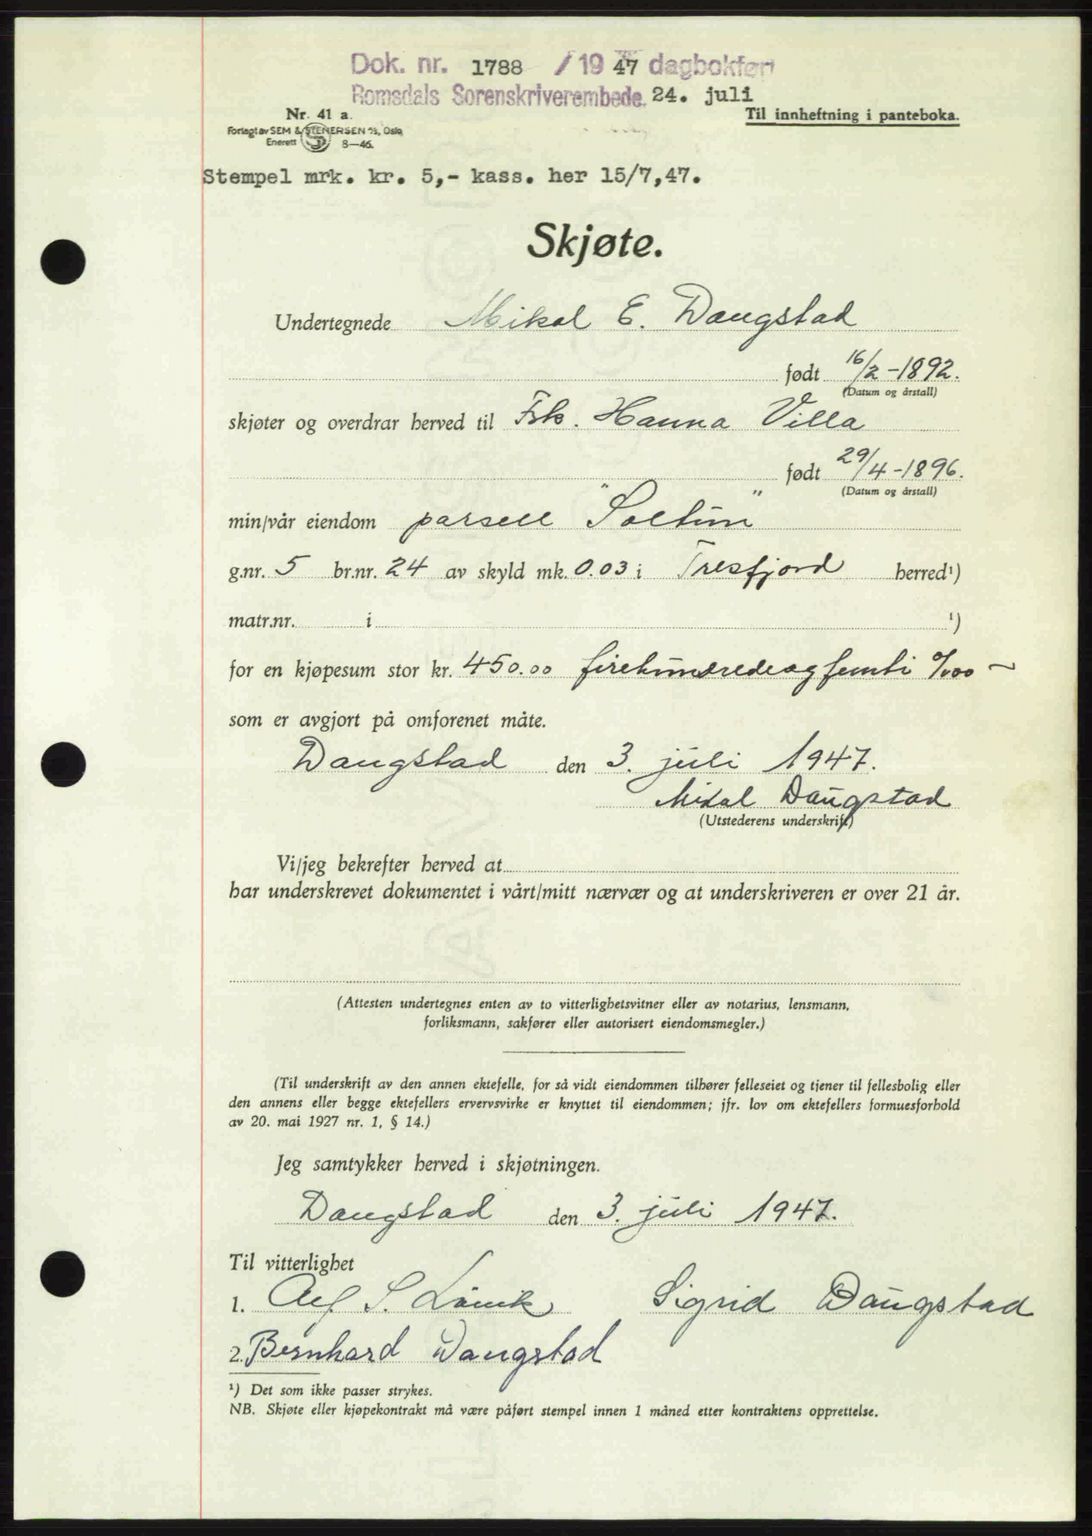 Dok. nr. 1788 / 1947 dagbokført
Romsdals Sorenskriverembede. 24. juli
Nr. 41 a.
Til innheftning i panteboka.
Forlagt av SEM & STENERSEN A/S, Oslo
Enerett 8—46.
Stempel mrk. kr. 5,- kass. her 15/7,47.
Skjøte.
Undertegnede Mikal E. Daugstad
født 16/2-1892.
(Datum og årstall)
skjøter og overdrar herved til Frk. Hanna Villa
født 29/4-1896.
(Datum og årstall)
min/vår eiendom parsell "Soltun"
g.nr. 5 br.nr. 24 av skyld mk. 0.03 i Tresfjord herred¹)
matr.nr. i ¹)
for en kjøpesum stor kr. 450.00 firehundredeogfemti 0/00 ~
som er avgjort på omforenet måte.
Daugstad den 3. juli 1947.
Mikal Daugstad
(Utstederens underskrift)
Vi/jeg bekrefter herved at
har underskrevet dokumentet i vårt/mitt nærvær og at underskriveren er over 21 år.
(Attesten undertegnes enten av to vitterlighetsvitner eller av notarius, lensmann,
forliksmann, sakfører eller autorisert eiendomsmegler.)
(Til underskrift av den annen ektefelle, for så vidt eiendommen tilhører felleseiet og tjener til fellesbolig eller
den annens eller begge ektefellers ervervsvirke er knyttet til eiendommen; jfr. lov om ektefellers formuesforhold
av 20. mai 1927 nr. 1, § 14.)
Jeg samtykker herved i skjøtningen.
Daugstad den 3. juli 1947.
Til vitterlighet
1. Alf S. Sigrid Daugstad
2. Bernhard Daugstad
¹) Det som ikke passer strykes.
NB. Skjøte eller kjøpekontrakt må være påført stempel innen 1 måned etter kontraktens opprettelse.